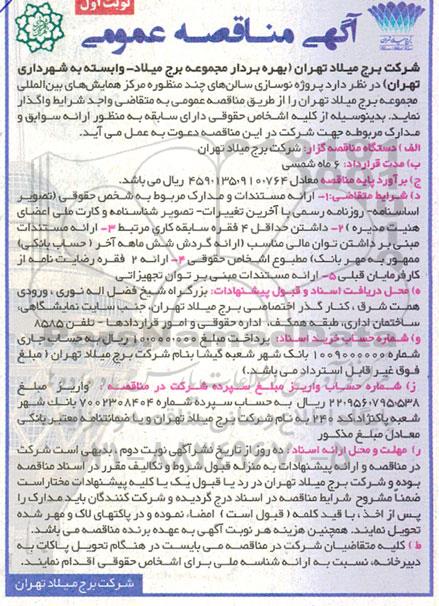 نوبت اول
آگهی مناقصه عمومی
شرکت برج میلاد تهران (بهره بردار مجموعه برج میلاد- وابسته به شهرداری
تهران) در نظر دارد پروژه نوسازی سالن‌های چند منظوره مرکز همایش‌های بین‌المللی
مجموعه برج میلاد تهران را از طریق مناقصه عمومی به متقاضی واجد شرایط واگذار
نماید. بدینوسیله از کلیه اشخاص حقوقی دارای سابقه به منظور ارائه سوابق و
مدارک مربوطه جهت شرکت در این مناقصه دعوت به عمل می آید.
الف) دستگاه مناقصه گزار: شرکت برج میلاد تهران
ب) مدت قرارداد: ۶ ماه شمسی
ج) برآورد پایه مناقصه معادل ۴۵۹۰۱۳۵۰۹۱۰۰۷۶۴ ریال می باشد.
د) شرایط متقاضی: ۱- ارائه مستندات و مدارک مربوط به شخص حقوقی (تصویر
اساسنامه- روزنامه رسمی با آخرین تغییرات- تصویر شناسنامه و کارت ملی اعضای
هیئت مدیره) ۲- داشتن حداقل ۴ فقره سابقه کاری مرتبط ۳- ارائه مستندات
مبنی بر داشتن توان مالی مناسب (ارائه گردش شش ماهه آخر (حساب بانکی)
ممهور به مهر بانک) مطبوع اشخاص حقوقی ۴- ارائه ۲ فقره رضایت نامه از
کارفرمایان قبلی ۵- ارائه مستندات مبنی بر توان تجهیزاتی
ه) محل دریافت اسناد و قبول پیشنهادات: بزرگراه شیخ فضل اله نوری ، ورودی
همت شرق، کنار گذر اختصاصی برج میلاد تهران، جنب سایت نمایشگاهی،
ساختمان اداری، طبقه همکف، اداره حقوقی و امور قراردادها - تلفن ۸۵۸۵
و) شماره حساب خرید اسناد: پرداخت مبلغ ریال به حساب جاری
شماره بانک شهر شعبه گیشا بنام شرکت برج میلاد تهران (مبلغ
فوق غیر قابل استرداد می باشد.)
ز) شماره حساب واریز مبلغ سپرده شرکت در مناقصه: واریز مبلغ
ریال به حساب سپرده شماره ۷۰۰۲۳۰۸۴۰۴ بانک شهر
شعبه پاکنژاد کد ۲۴۰ به نام شرکت برج میلاد تهران و یا ضمانتنامه معتبر بانکی
معادل مبلغ مذکور
ر) مهلت و محل ارائه اسناد: ده روز از تاریخ نشر آگهی نوبت دوم ، بدیهی است شرکت
در مناقصه و ارائه پیشنهادات به منزله قبول شروط و تکالیف مقرر در اسناد مناقصه
بوده و شرکت برج میلاد تهران در رد یا قبول یک یا کلیه پیشنهادات مختار است
ضمنا مشروح شرایط مناقصه در اسناد درج گردیده و شرکت کنندگان باید مدارک را
پس از اخذ ، با قید کلمه (قبول است) امضاء نموده و در پاکتهای لاک و مهر شده
تحویل نمایند. همچنین هزینه هر نوبت آگهی به عهده برنده مناقصه می باشد.
ط) کلیه متقاضیان شرکت در مناقصه می بایست در هنگام تحویل پاکات به
دبیرخانه، نسبت به ارائه شناسه ملی برای اشخاص حقوقی اقدام نمایند.
شرکت برج میلاد تهران